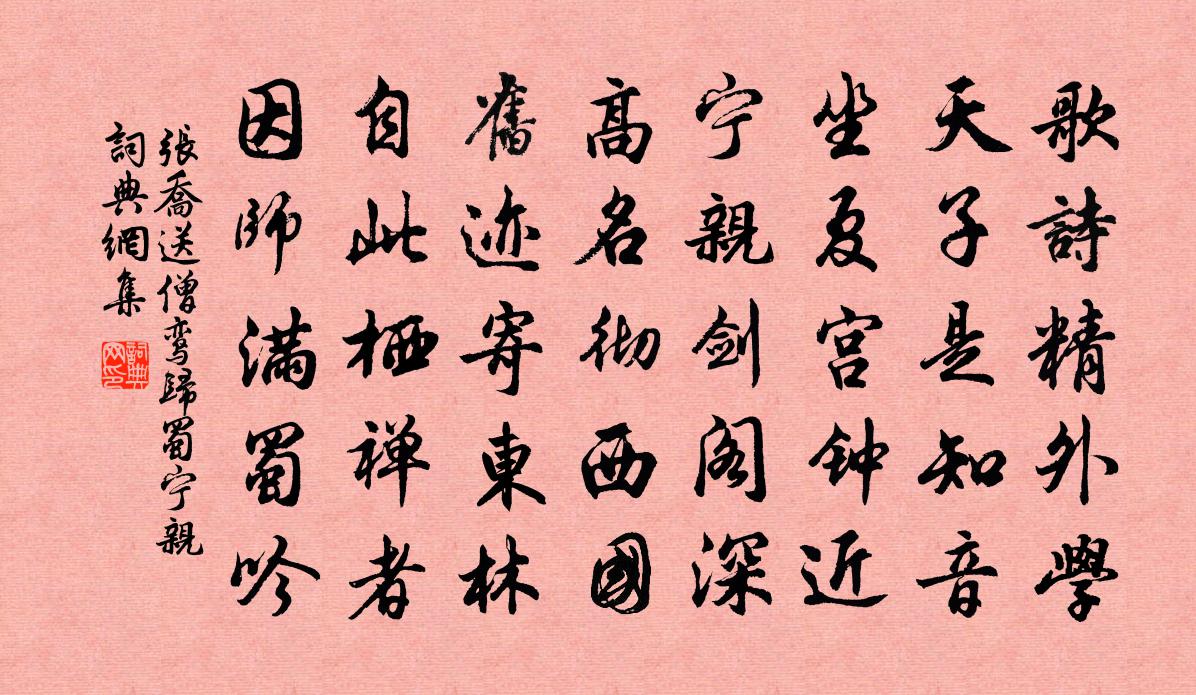 歌詩精外學
天子是知音
坐夏宫钟近
宁親剑阁深
高名彻西國
舊迹寄東林
自此栖禅者
因师满蜀吟
張喬送僧鸾歸蜀宁親
詞典網集
詞典网印